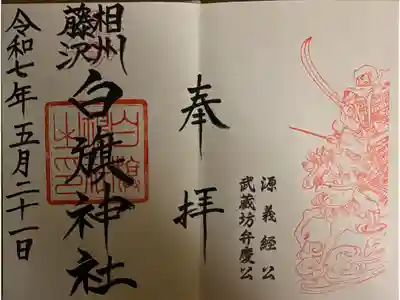 源義経公
武蔵坊弁慶公
奉拝
相州
藤沢
白旗神社
令和七年五月二十一日